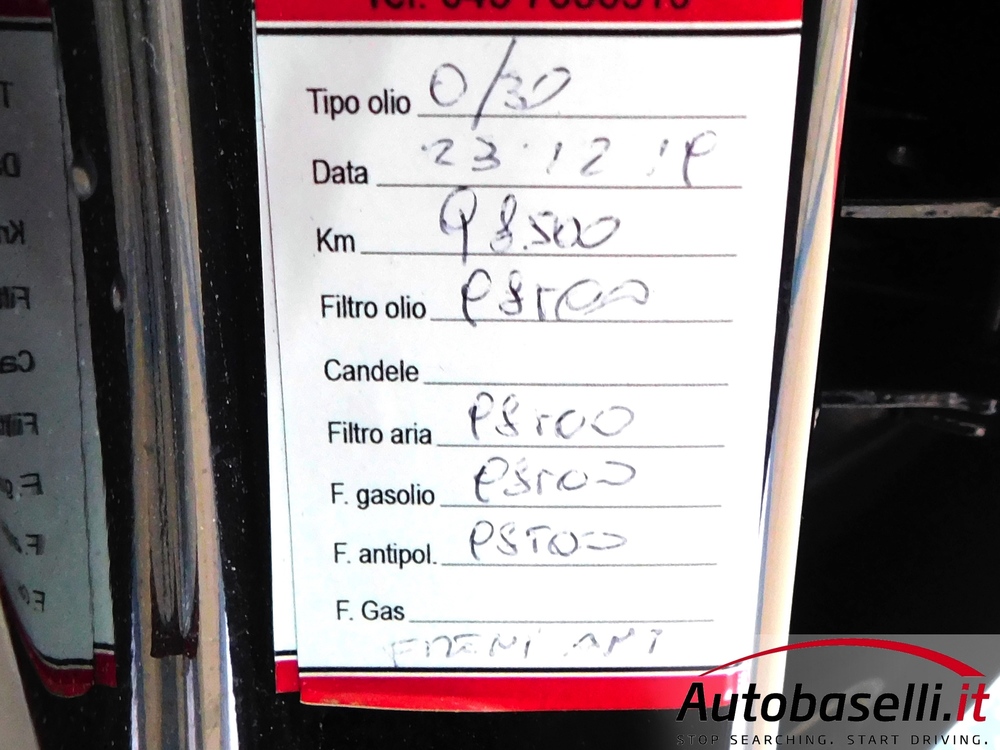 Tipo olio 0/30
Data 23.12.19
Km 98.500
Filtro olio 98500
Candele
Filtro aria 98500
F. gasolio 98500
F. antipol. 98500
F. Gas
FRENI ANT
Autobaselli.it
STOP SEARCHING. START DRIVING.